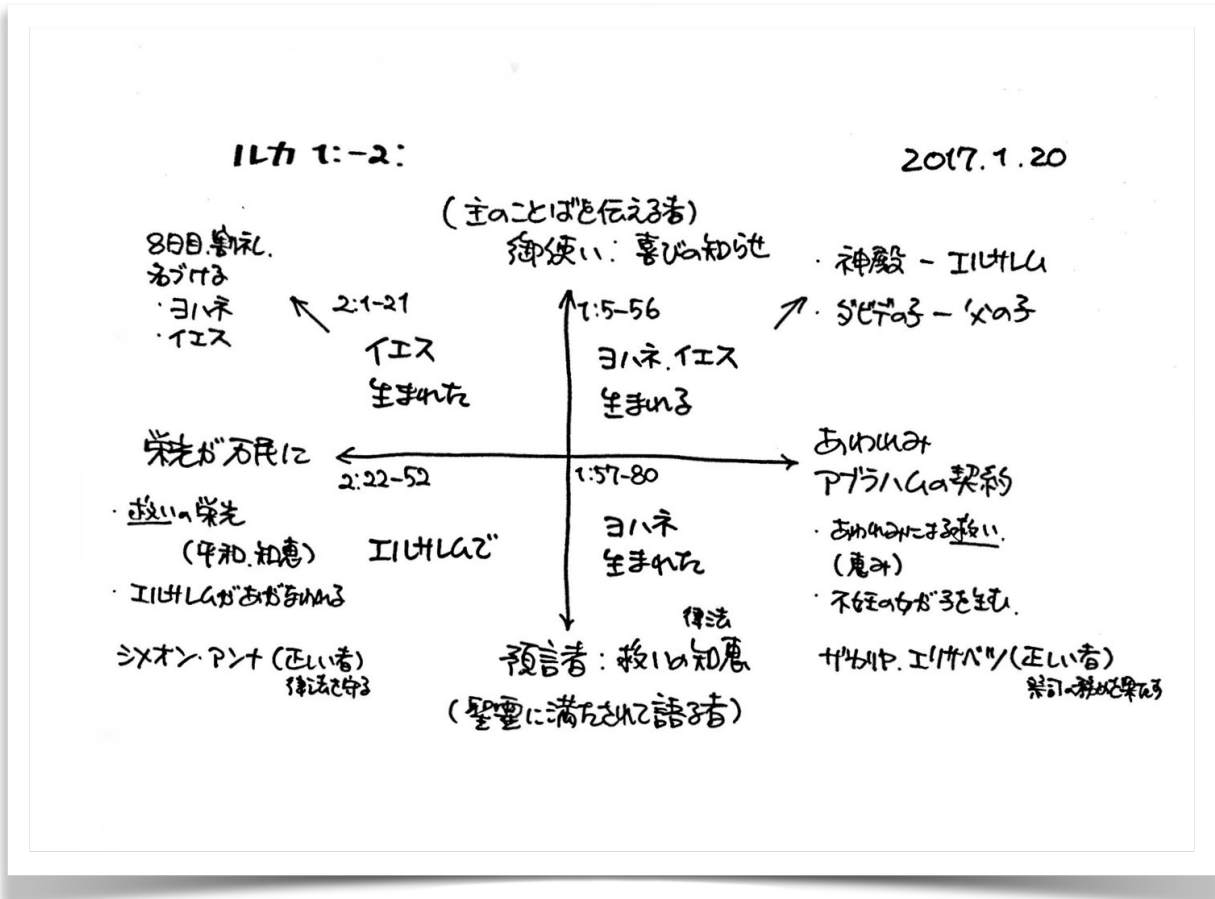 ルカ 1:-2:
2017.1.20
(主のことばを伝える者)
御使い：喜びの知らせ
8日目.割礼.
名づける
・ヨハネ
・イエス
2:1-21
イエス
生まれた
1:5-56
ヨハネ.イエス
生まれる
・神殿－エルサレム
・ダビデの子－父の子
栄光が万民に
2:22-52
1:57-80
あわれみ
アブラハムの契約
・救いの栄光
(平和.知恵)
・エルサレムがあがなわれる
エルサレムで
ヨハネ
生まれた
・あわれみによる救い.
(恵み)
・不妊の女が子を生む.
シメオン・アンナ(正しい者)
律法を守る
律法
預言者：救いの知恵
(聖霊に満たされて語る者)
ザカリヤ.エリサベツ(正しい者)
祭司の務めを果たす